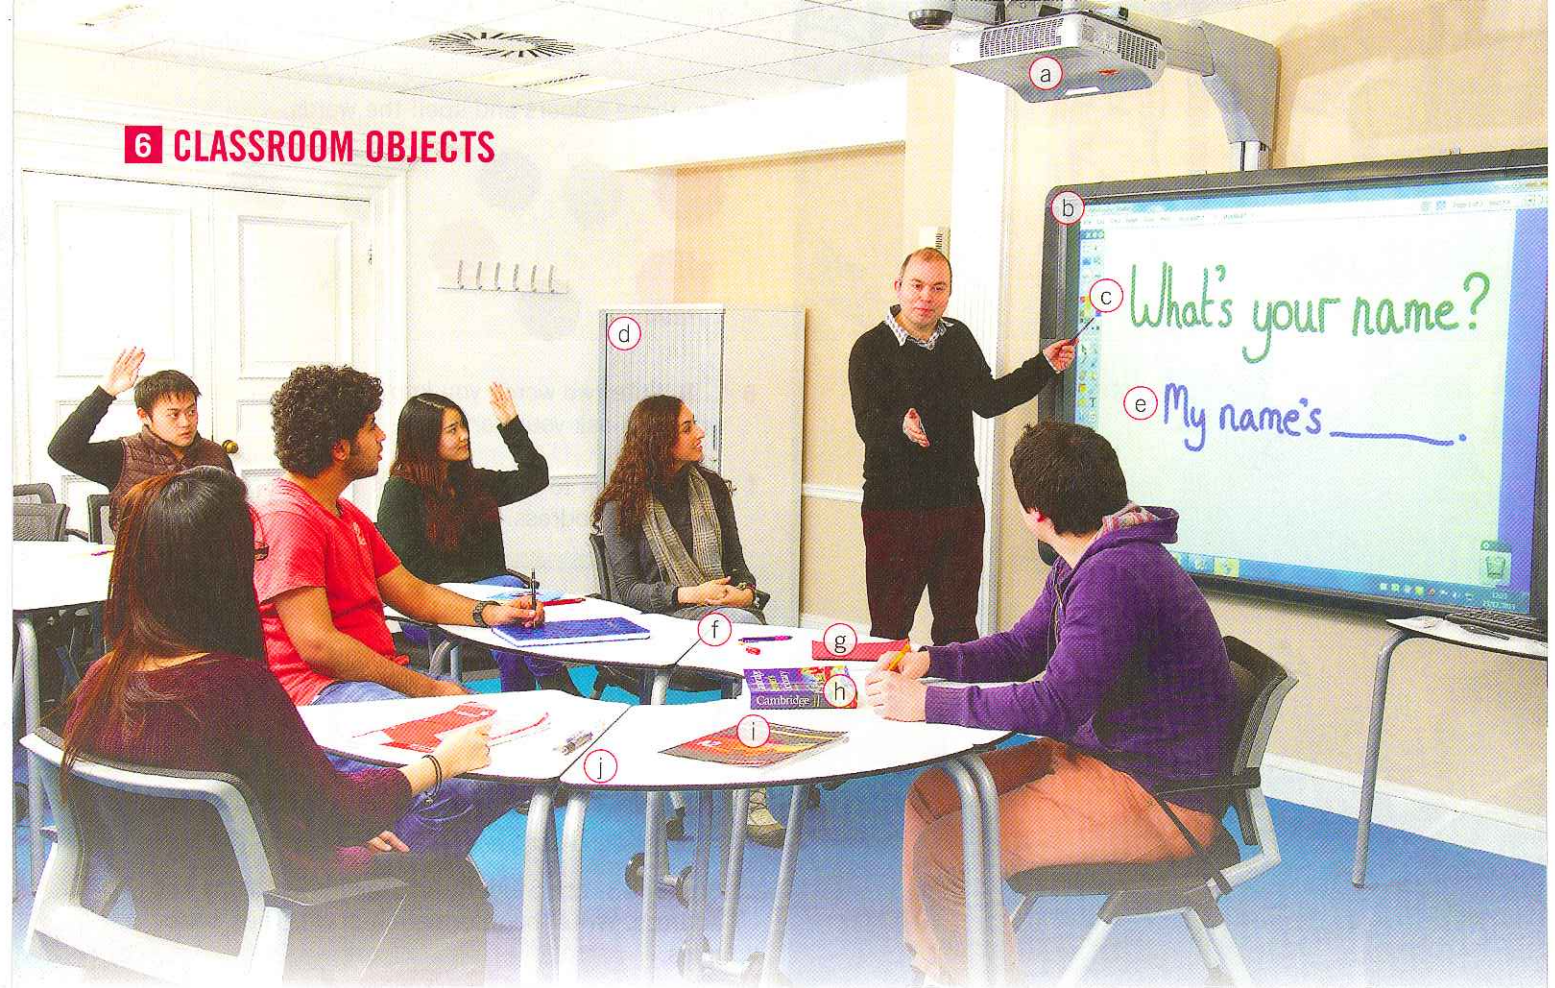 6 CLASSROOM OBJECTS
a
b
c What's your name?
d
e My name's ______.
f
g
h
Cambridge
i
j